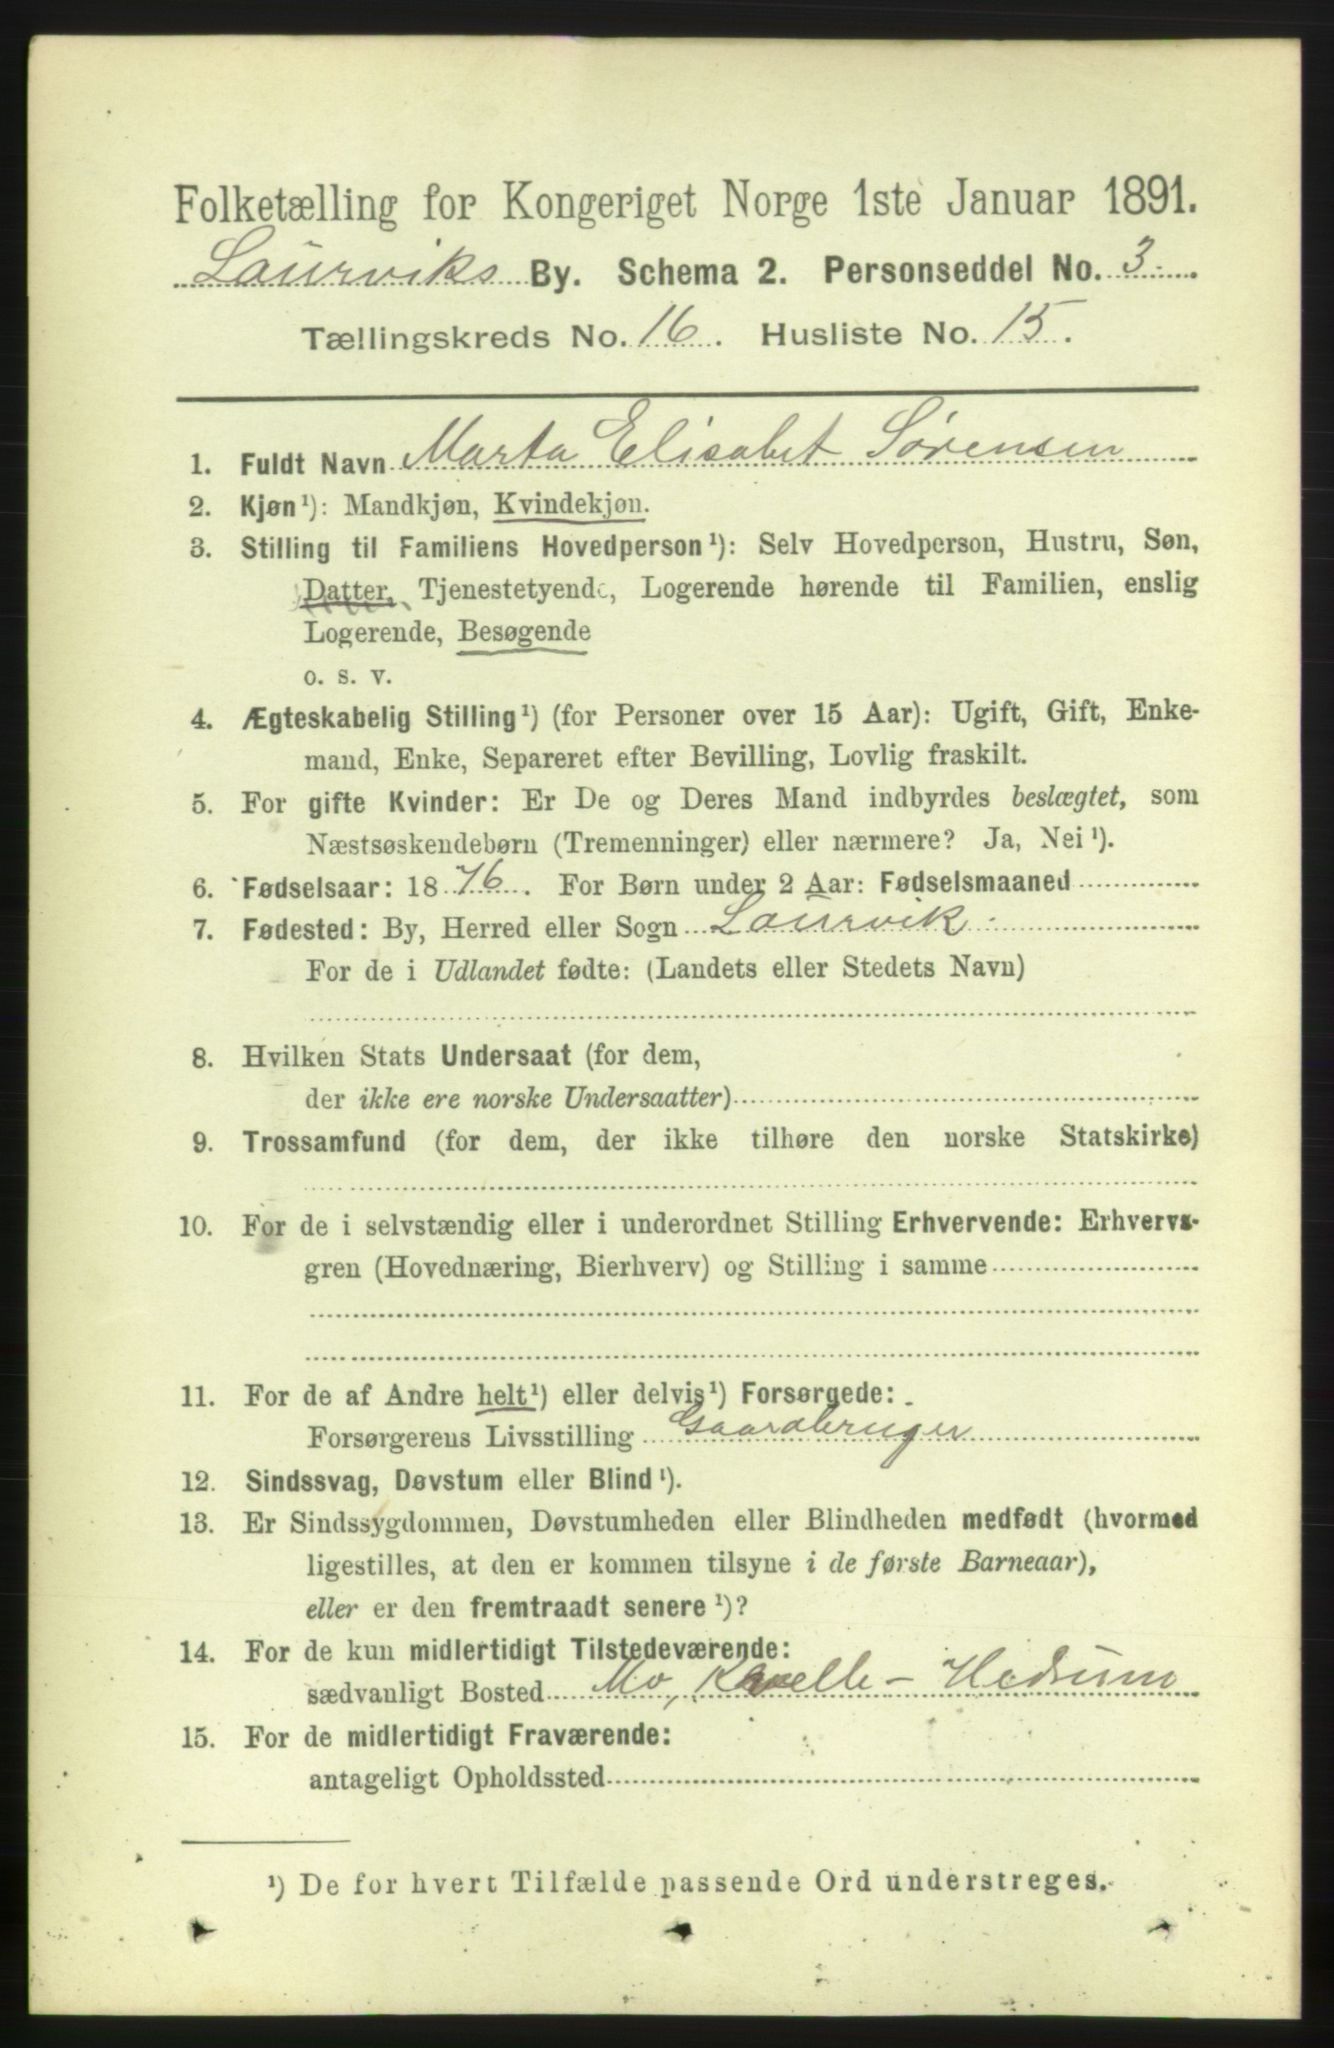 Folketælling for Kongeriget Norge 1ste Januar 1891.
Laurviks By. Schema 2. Personseddel No. 3.
Tællingskreds No. 16. Husliste No. 15.
1. Fuldt Navn Marta Elisabet Sørensen
2. Kjøn¹): Mandkjøn, Kvindekjøn.
3. Stilling til Familiens Hovedperson¹): Selv Hovedperson, Hustru, Søn,
Datter, Tjenestetyende, Logerende hørende til Familien, enslig
Logerende, Besøgende
o. s. v.
4. Ægteskabelig Stilling¹) (for Personer over 15 Aar): Ugift, Gift, Enke-
mand, Enke, Separeret efter Bevilling, Lovlig fraskilt.
5. For gifte Kvinder: Er De og Deres Mand indbyrdes beslægtet, som
Næstsøskendebørn (Tremenninger) eller nærmere? Ja, Nei¹).
6. Fødselsaar: 1876. For Børn under 2 Aar: Fødselsmaaned
7. Fødested: By, Herred eller Sogn Laurvik
For de i Udlandet fødte: (Landets eller Stedets Navn)
8. Hvilken Stats Undersaat (for dem,
der ikke ere norske Undersaatter)
9. Trossamfund (for dem, der ikke tilhøre den norske Statskirke)
10. For de i selvstændig eller i underordnet Stilling Erhvervende: Erhvervs-
gren (Hovednæring, Bierhverv) og Stilling i samme
11. For de af Andre helt¹) eller delvis¹) Forsørgede:
Forsørgerens Livsstilling Gaardbruger
12. Sindssvag, Døvstum eller Blind¹).
13. Er Sindssygdommen, Døvstumheden eller Blindheden medfødt (hvormed
ligestilles, at den er kommen tilsyne i de første Barneaar),
eller er den fremtraadt senere¹)?
14. For de kun midlertidigt Tilstedeværende:
sædvanligt Bosted Mo, - Hedrum
15. For de midlertidigt Fraværende:
antageligt Opholdssted
¹) De for hvert Tilfælde passende Ord understreges.